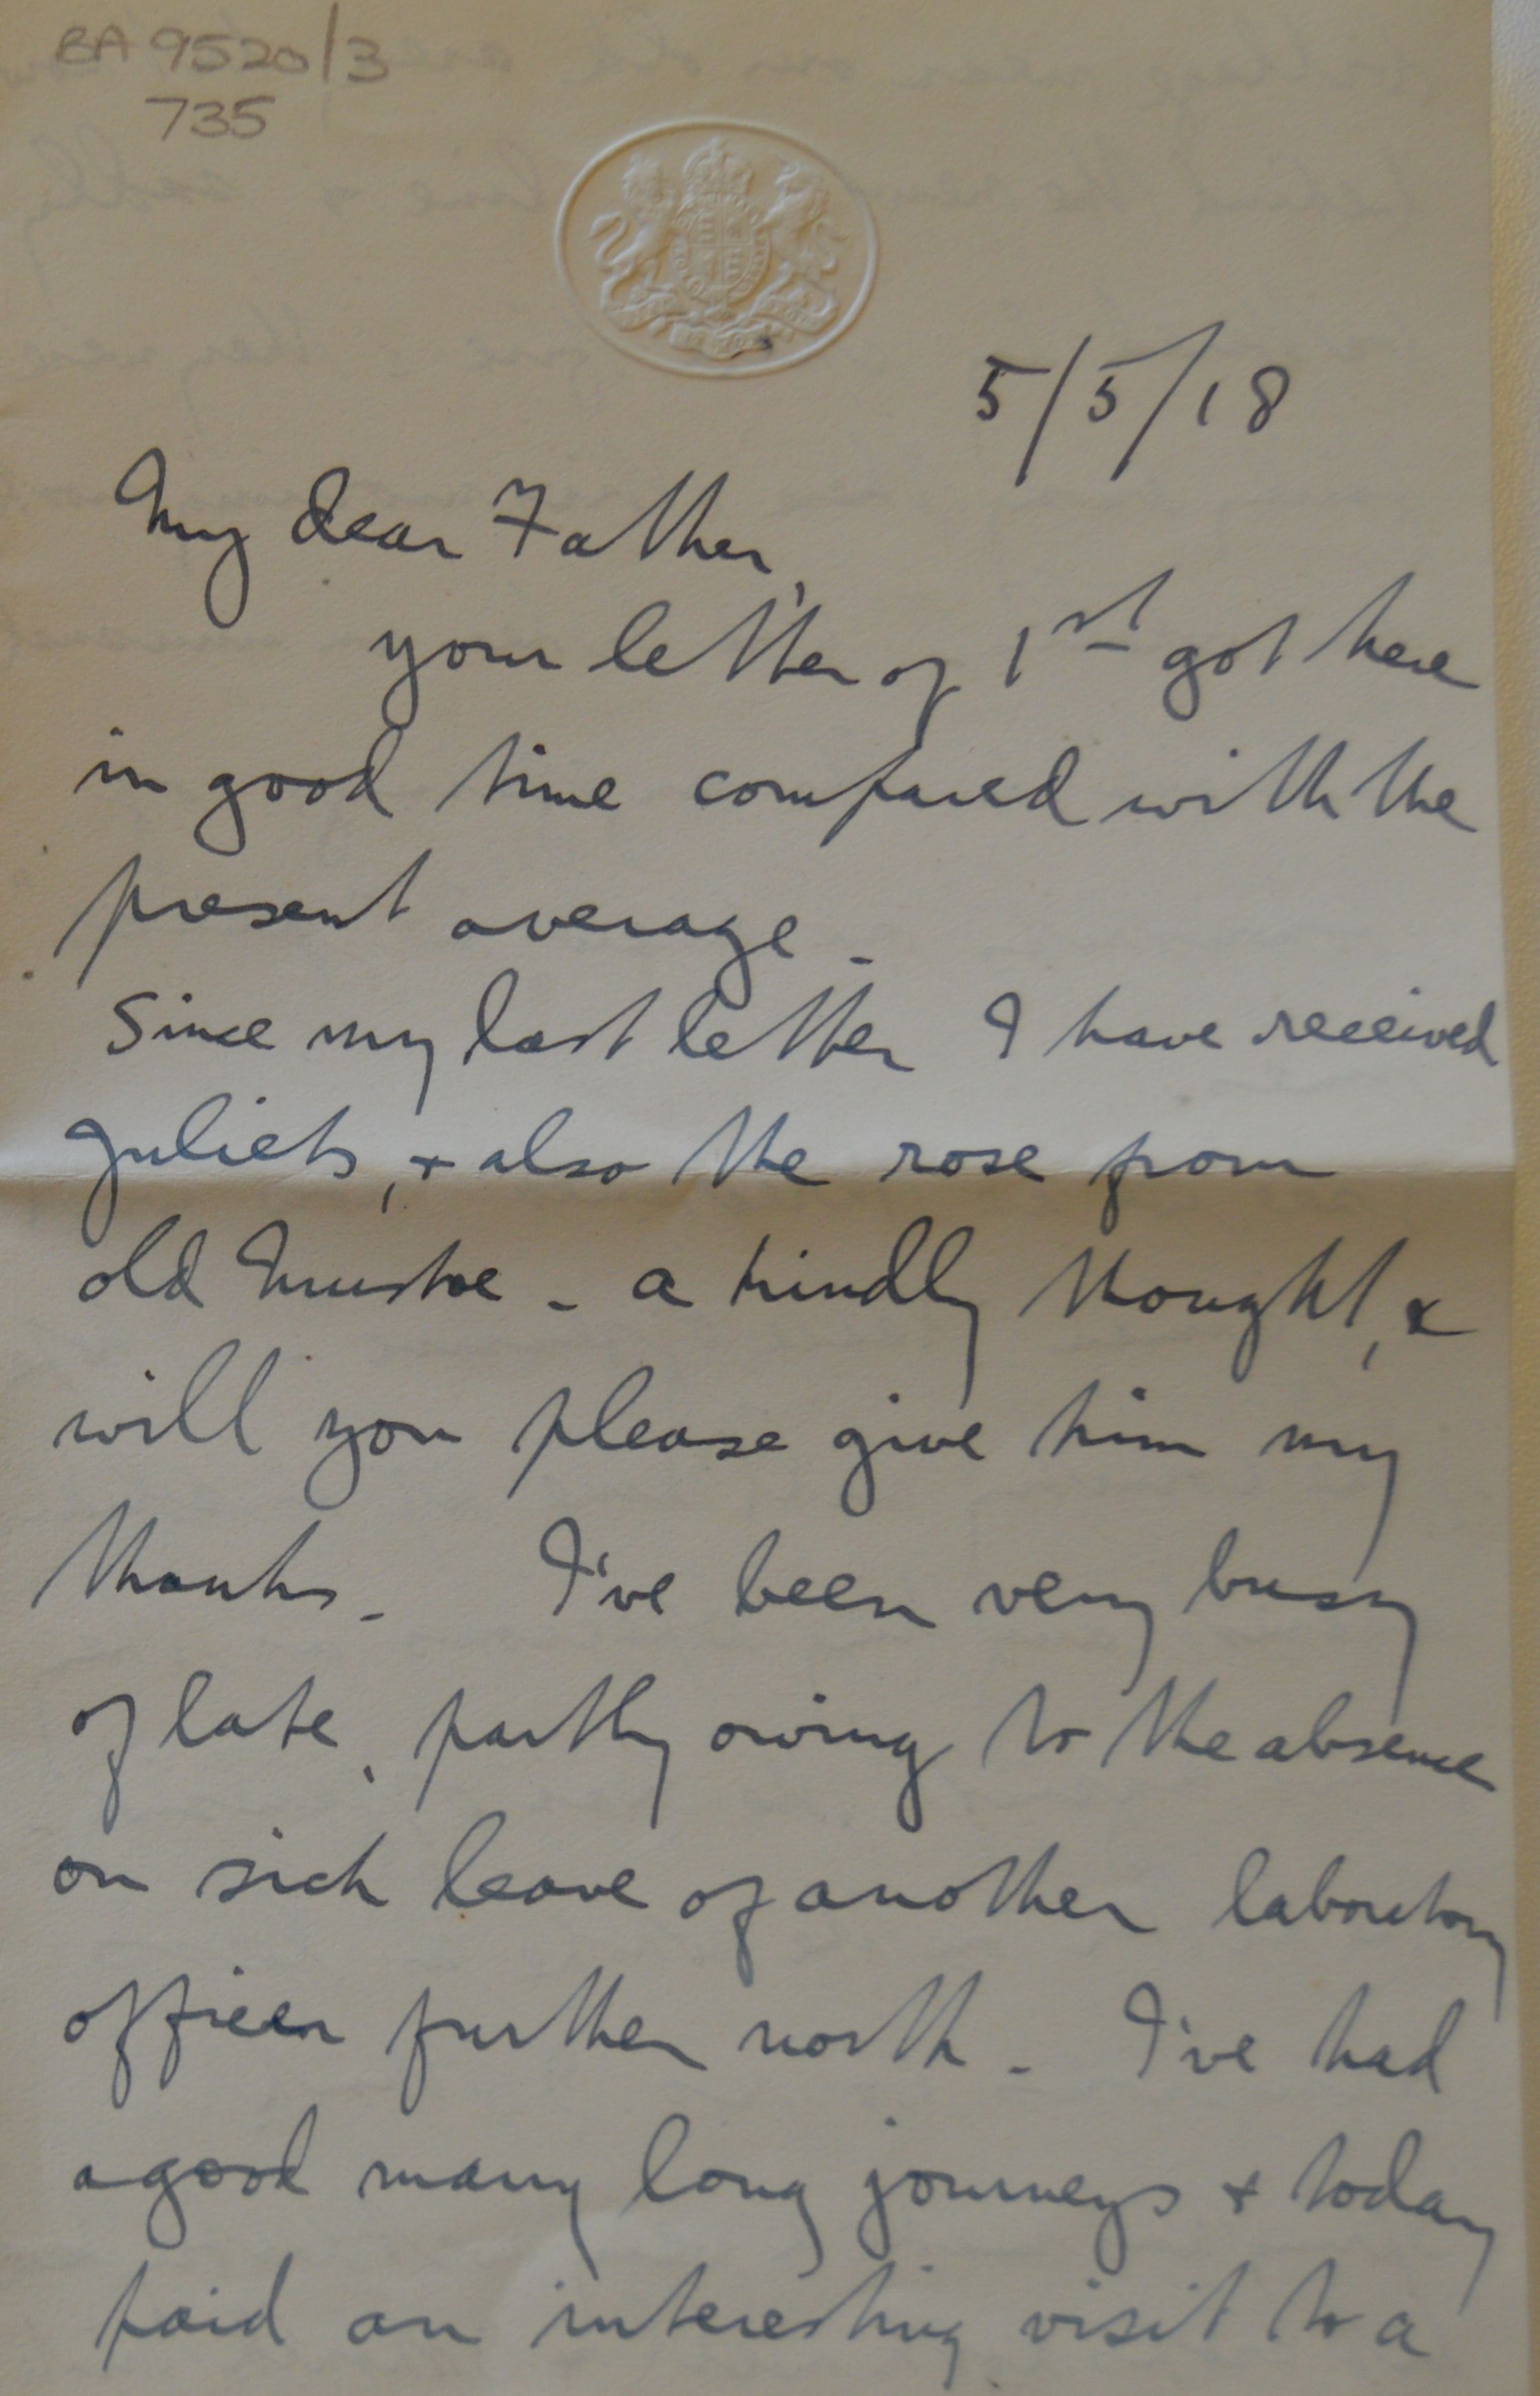 BA 9520/3
735
5/5/18
My dear Father,
your letter of 1st got here
in good time compared with the
present average -
Since my last letter I have received
Juliets, + also the rose from
old Mustoe - a kindly thought, &
will you please give him my
thanks - I've been very busy
of late, partly owing to the absence
on sick leave of another laboratory
officer further north - I've had
a good many long journeys + today
paid an interesting visit to a